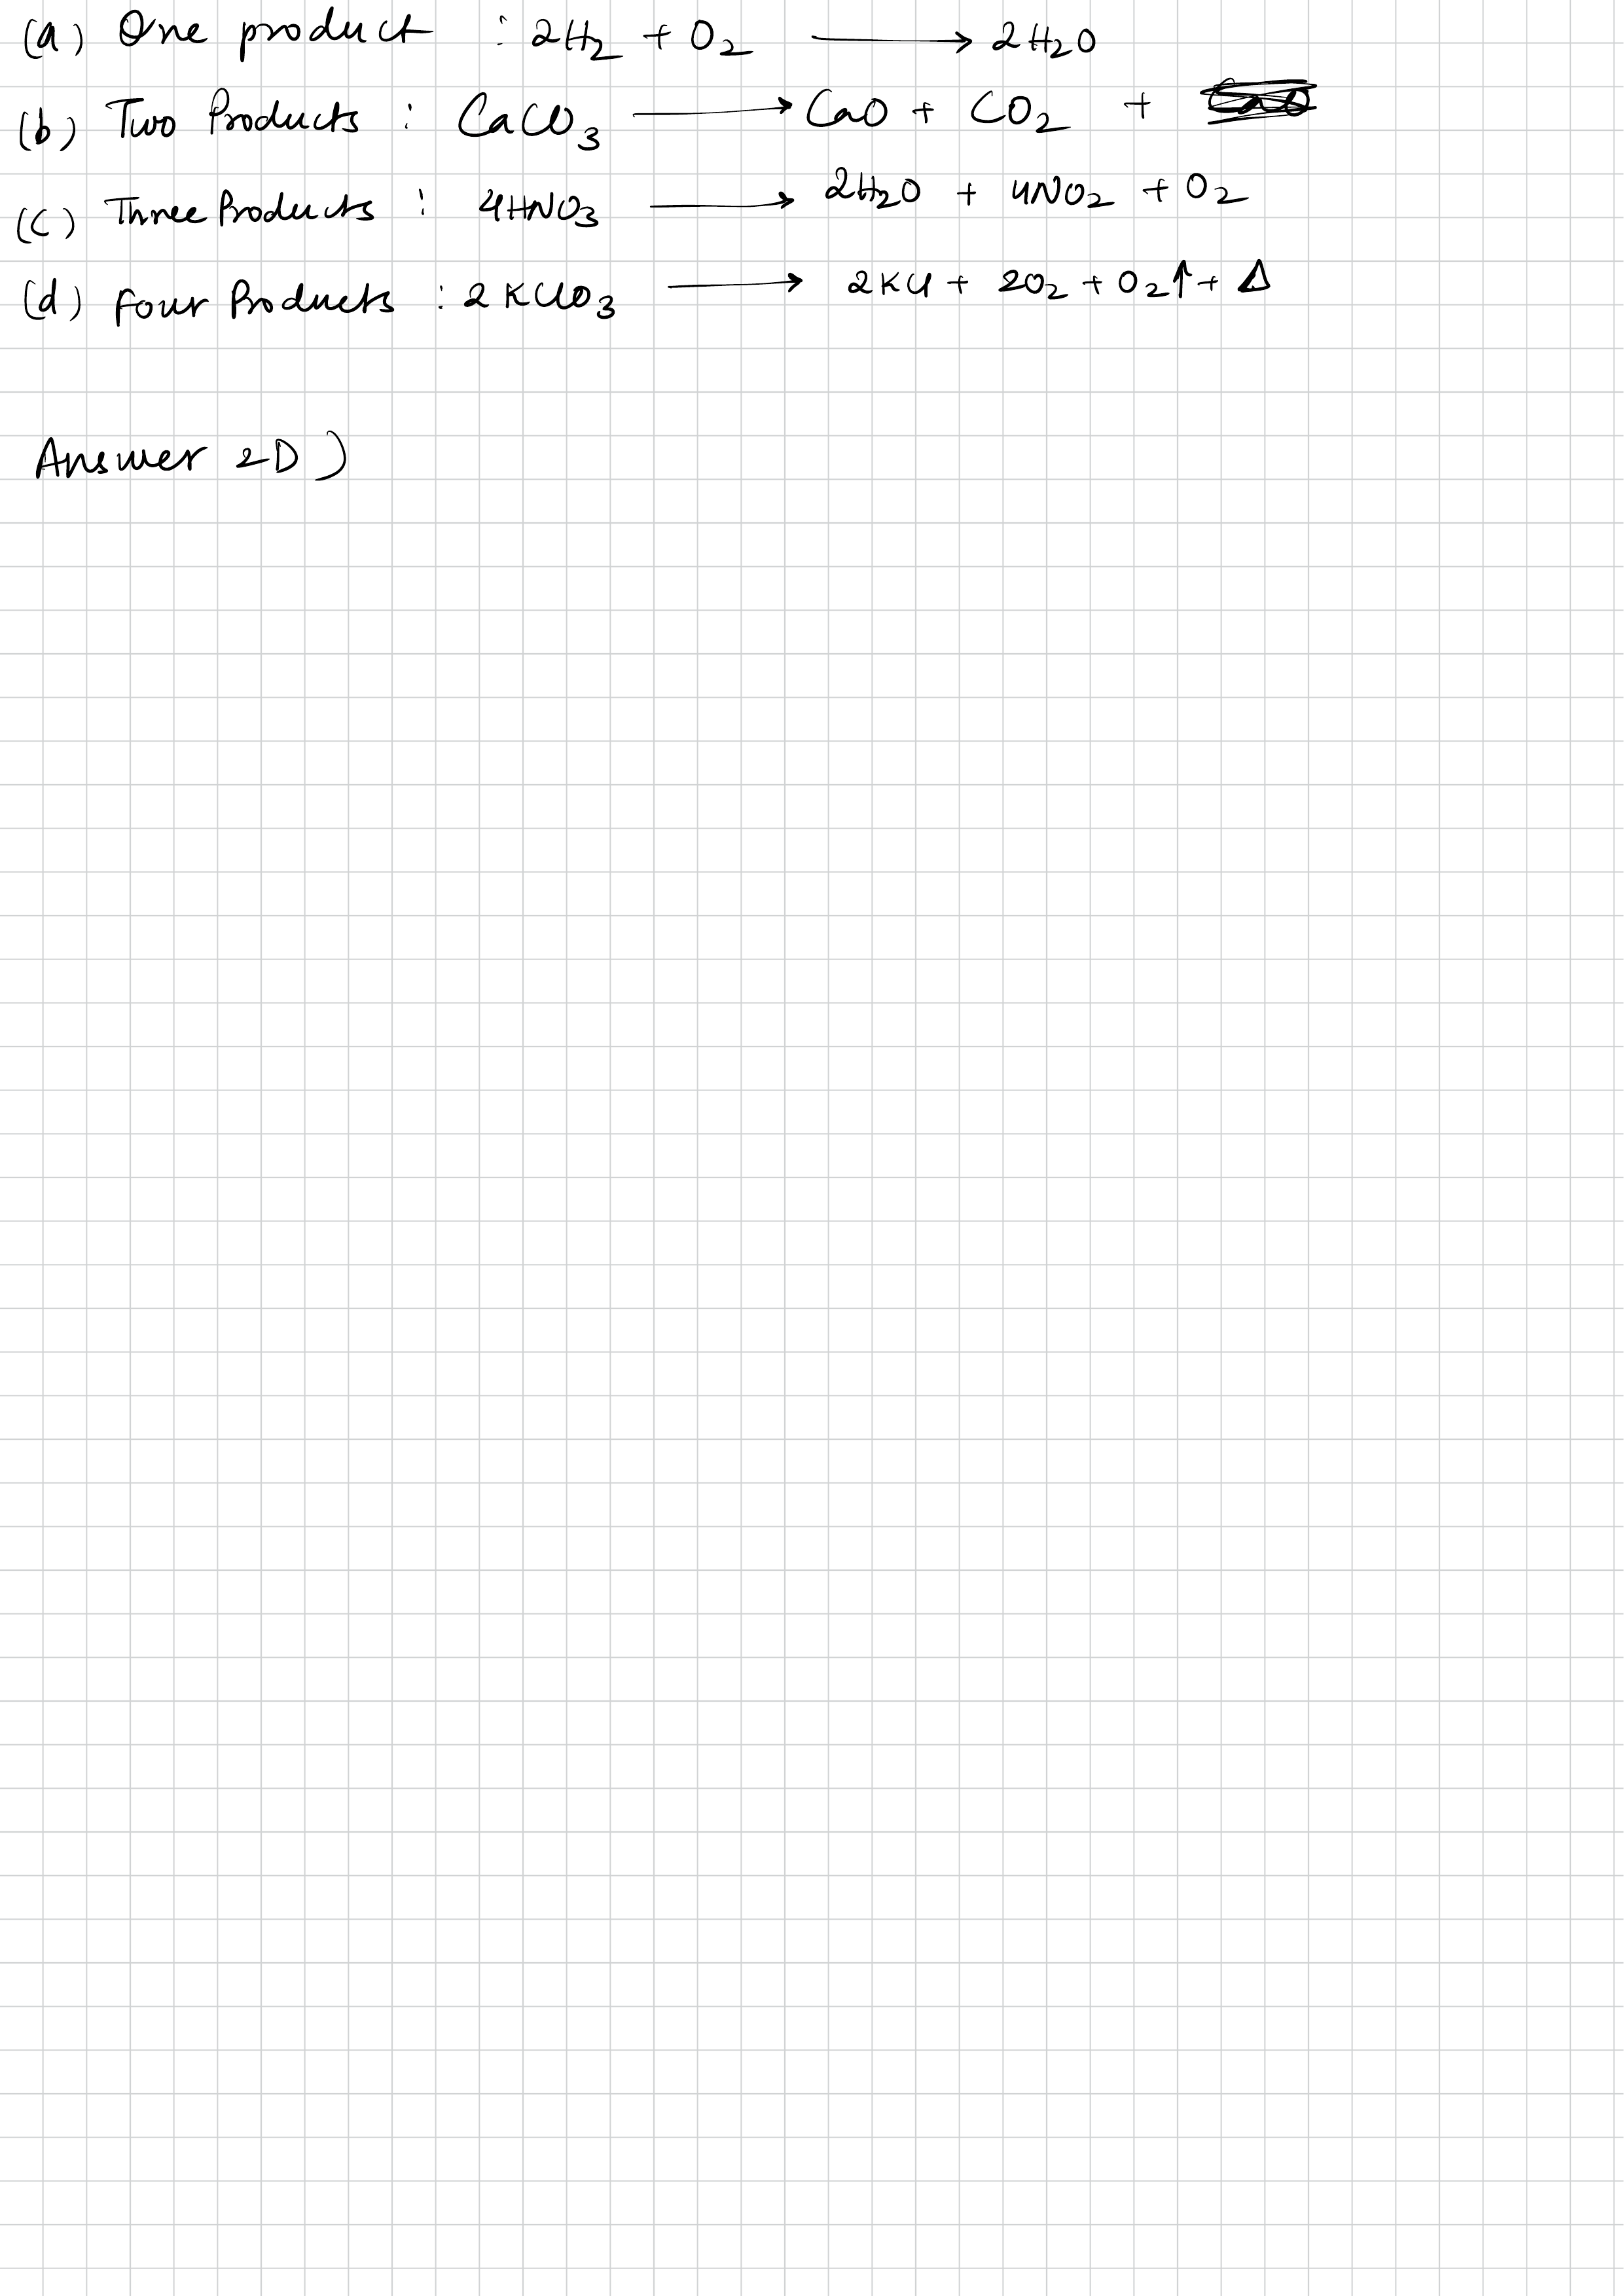 (a) One product : 2H₂ + O₂ → 2H₂O
(b) Two Products : CaCO₃ → CaO + CO₂ +
(c) Three Products : 4HNO₃ → 2H₂O + 4NO₂ + O₂
(d) Four Products : 2KClO₃ → 2KCl + 2O₂ + O₂↑ + Δ
Answer 2D)